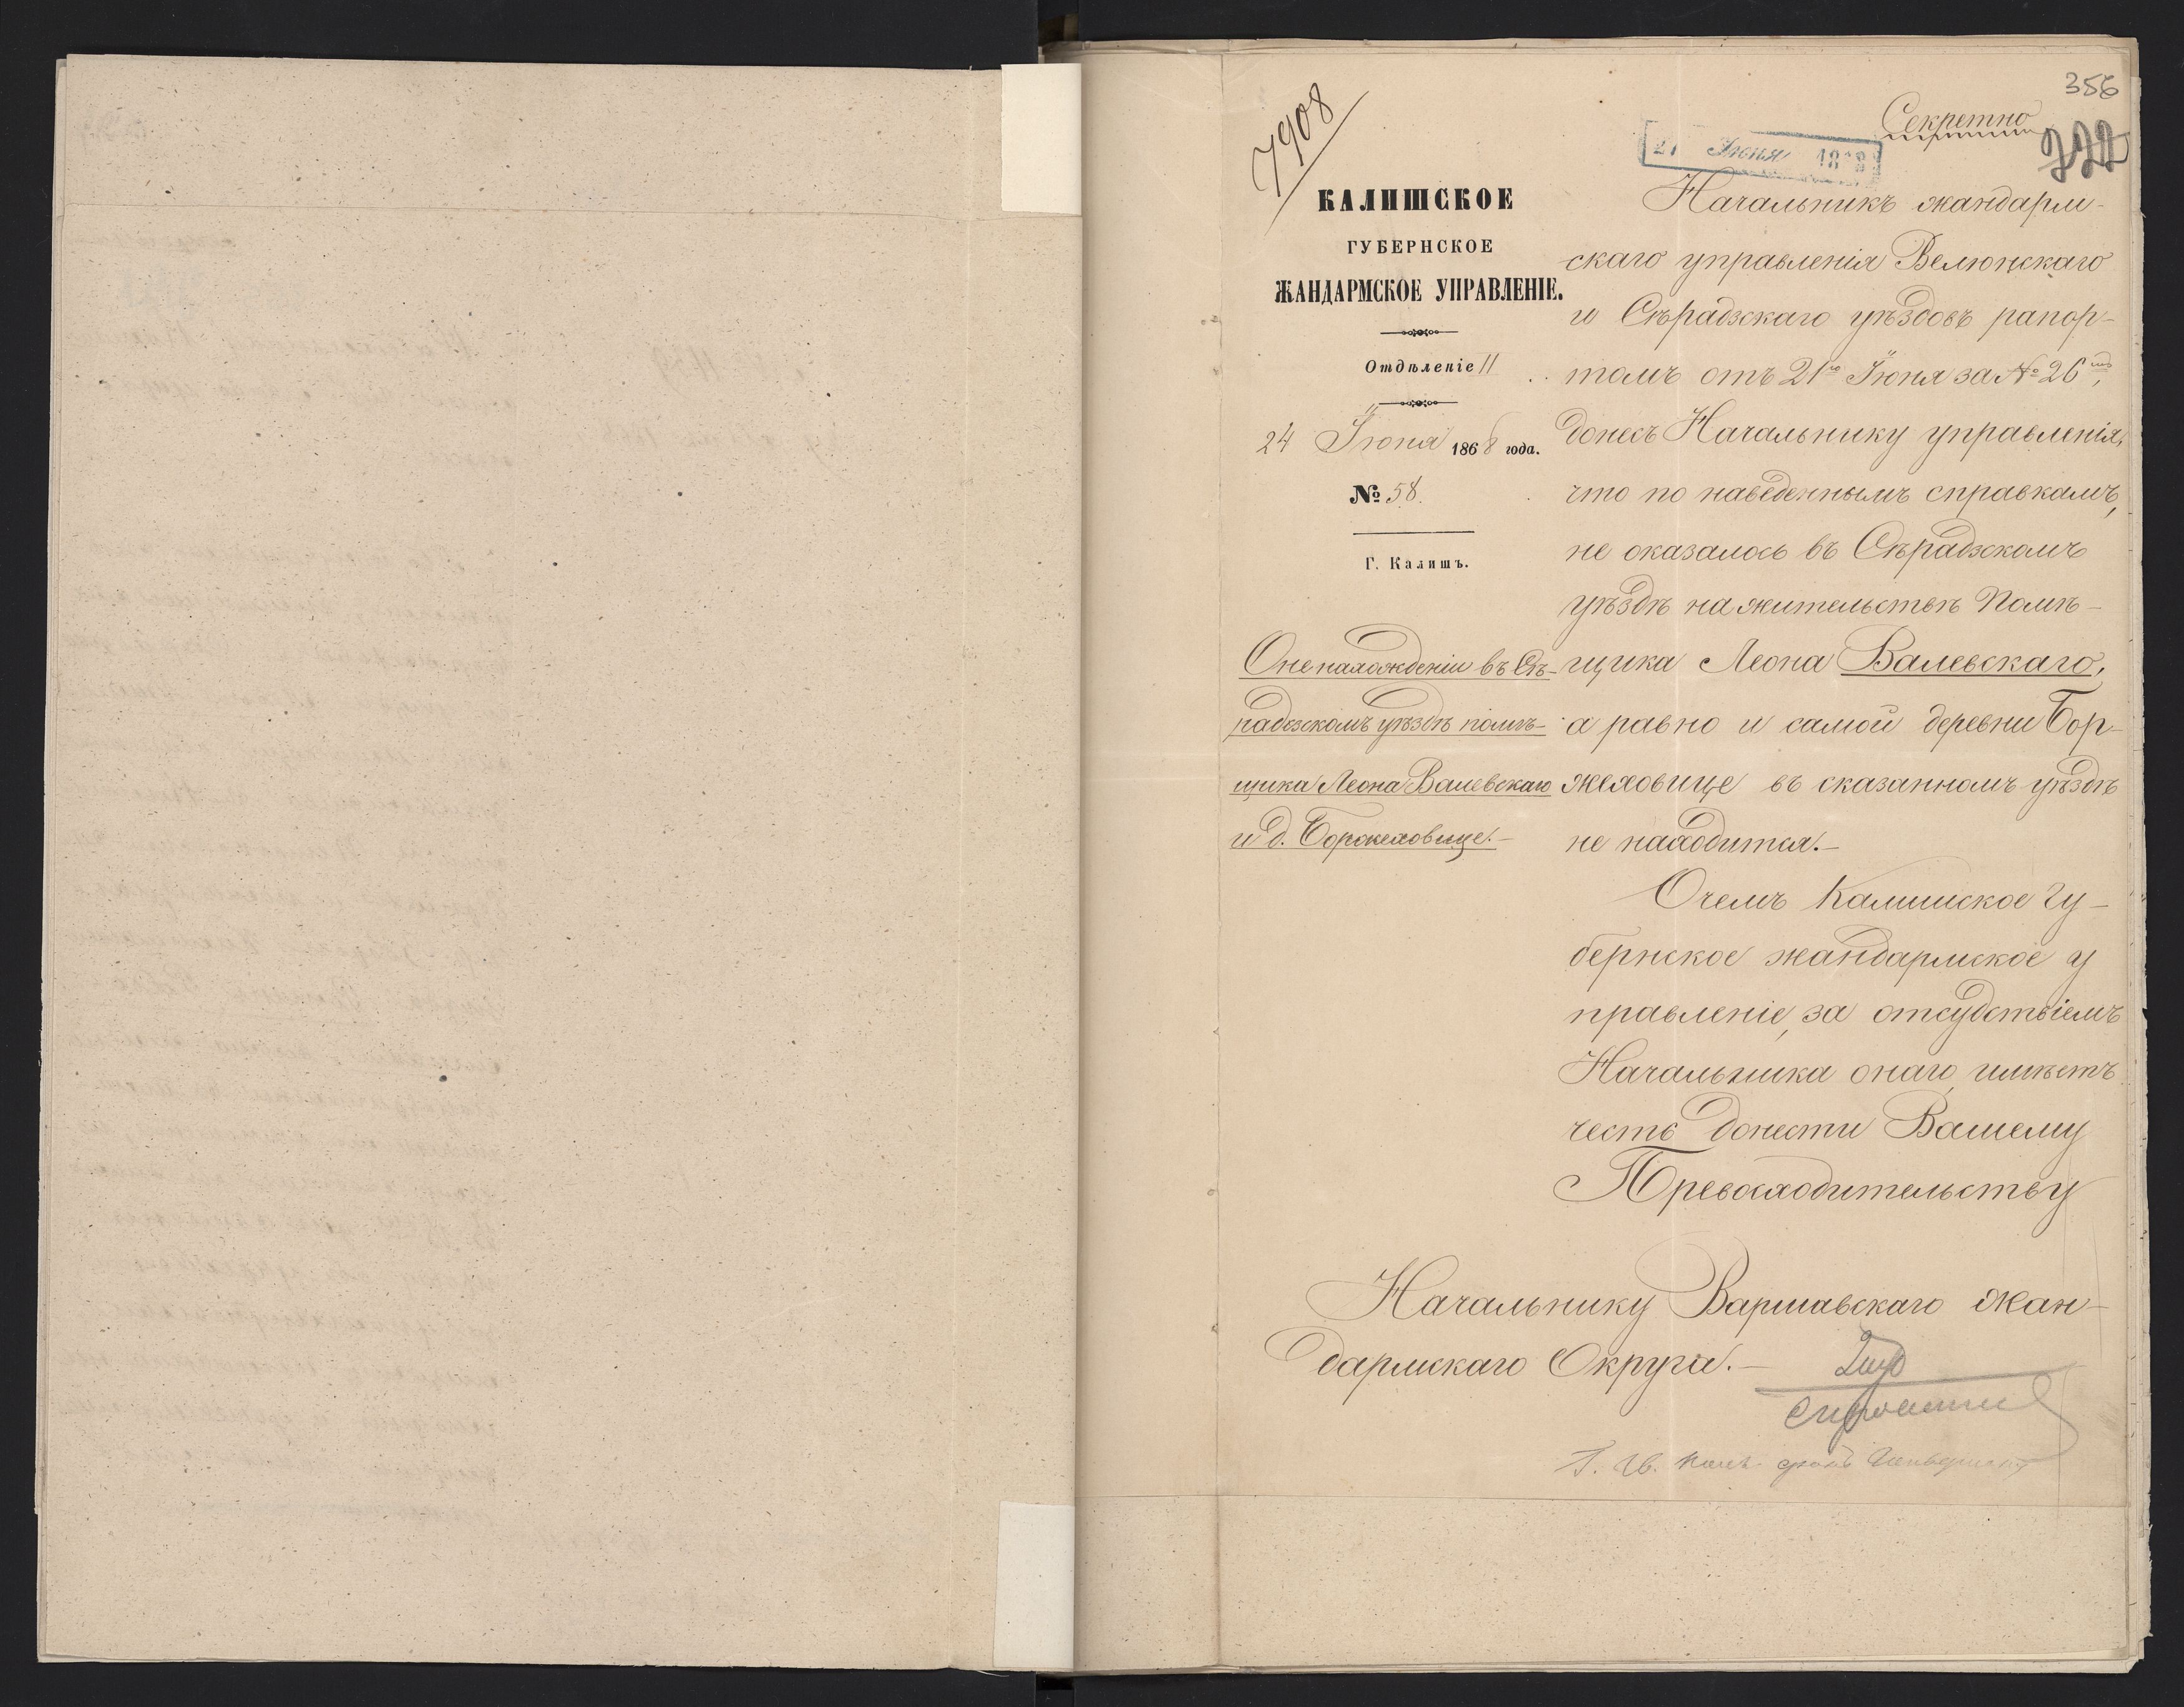 356
Секретно
7908
27 Июня 1868
722
КАЛИШСКОЕ
ГУБЕРНСКОЕ
ЖАНДАРМСКОЕ УПРАВЛЕНІЕ.
Отдѣленіе II
24 Іюня 1868 года.
№ 58.
Г. Калишъ.
О не нахожденіи въ Сѣ-
радзскомъ уѣздѣ помѣ-
щика Леона Валевскаго
и д. Боржеховице.-
Начальникъ жандарм-
скаго управленія Велюнскаго
и Сѣрадзскаго уѣздовъ рапор-
томъ отъ 21го Іюня за № 26мъ,
донесъ Начальнику управленія,
что по наведеннымъ справкамъ,
не оказалось въ Сѣрадзскомъ
уѣздѣ на жительствѣ Помѣ-
щика Леона Валевскаго,
а равно и самой деревни Бор-
жеховице въ сказанномъ уѣздѣ
не находится.-
О чемъ Калишское Гу-
бернское жандармское у
правленіе, за отсудствіемъ
Начальника онаго, имѣетъ
честь донести Вашему
Превосходительству
Начальнику Варшавскаго Жан-
дармскаго Округа.-